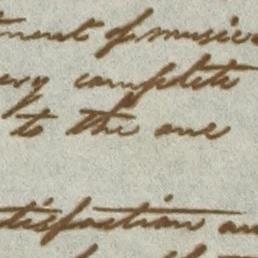 tment of music
ery complete
to the one
atisfaction an